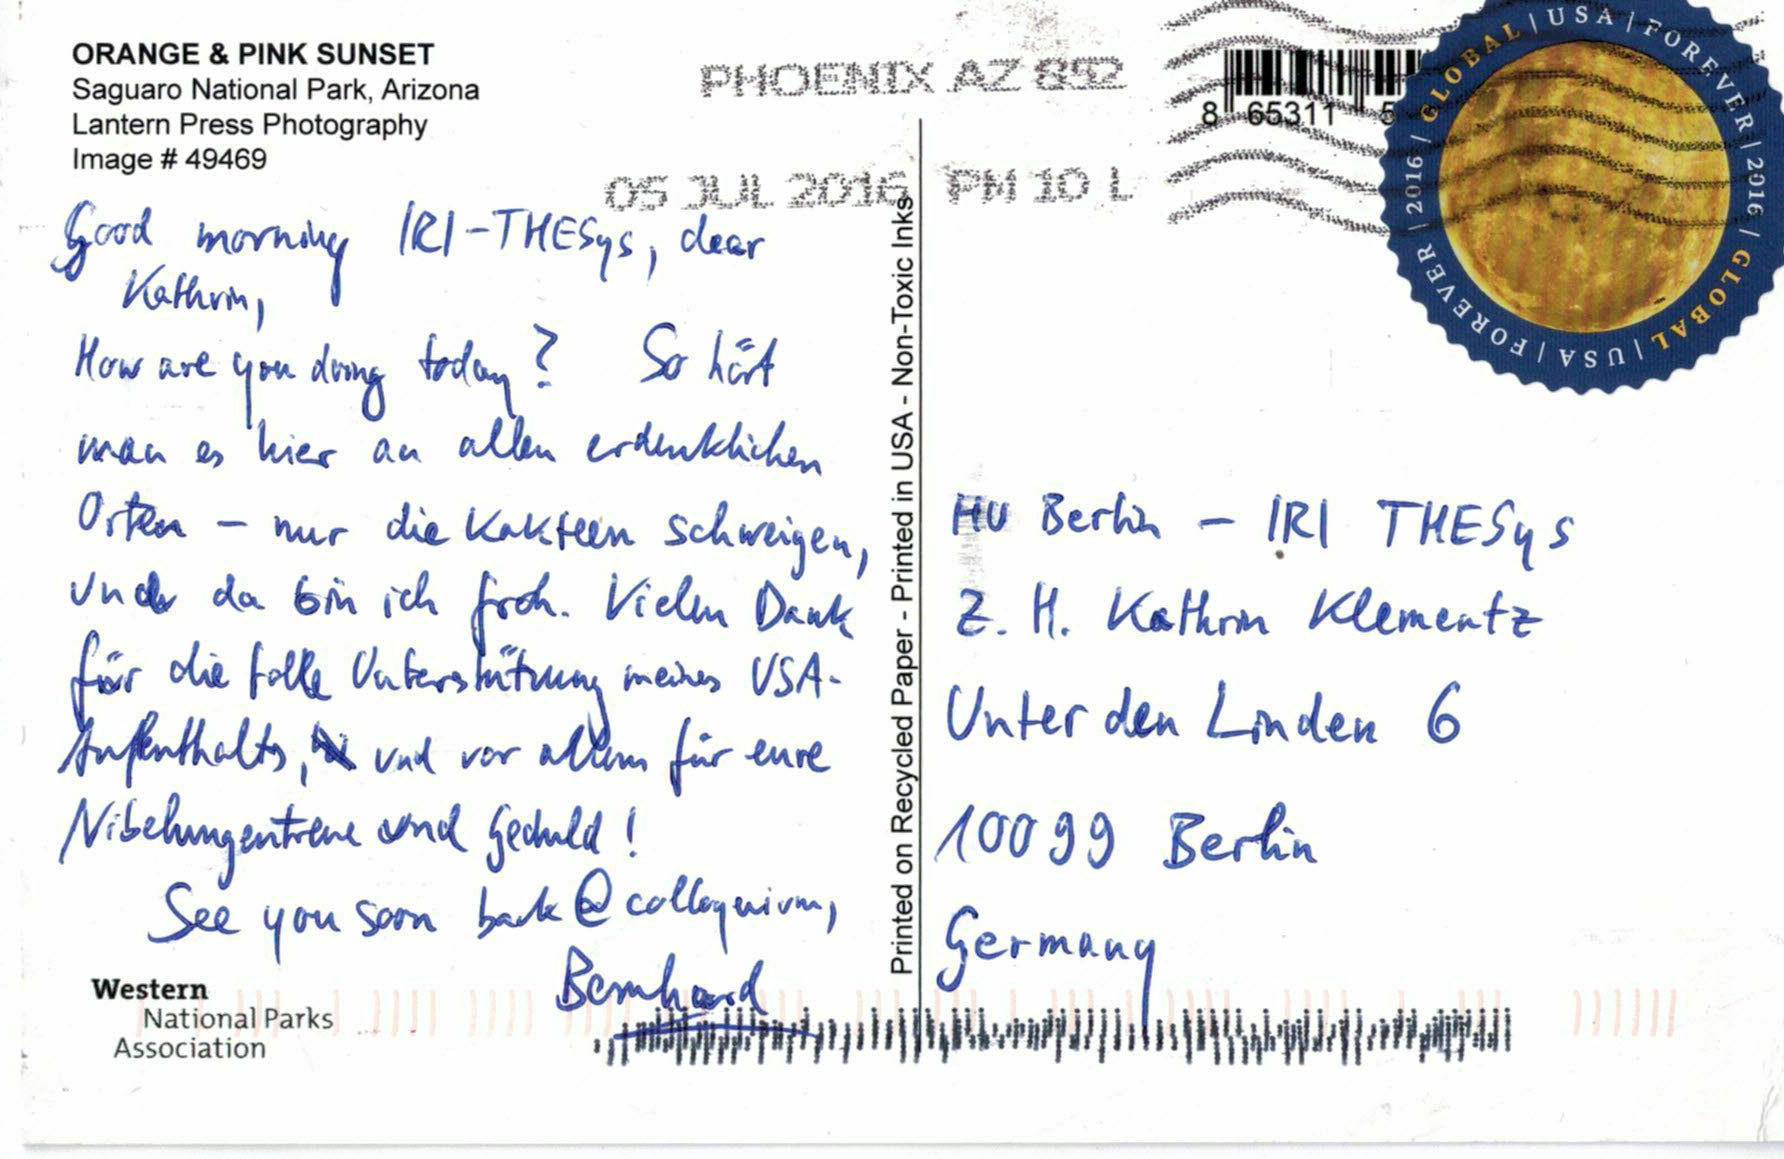 ORANGE & PINK SUNSET
Saguaro National Park, Arizona
Lantern Press Photography
Image # 49469
PHOENIX AZ 852
05 JUL 2016 PM 10 L
8 65311 5
GLOBAL | USA | FOREVER | 2016 / GLOBAL | USA | FOREVER | 2016 /
Good morning IRI-THESys, dear
Kathrin,
How are you doing today? So hört
man es hier an allen erdenklichen
Orten – nur die Kakteen schweigen,
und da bin ich froh. Vielen Dank
für die tolle Unterstützung meines USA-
Aufenthalts, und vor allem für eure
Nibelungentreue und Geduld!
See you soon back @ colloquium,
Bernhard
Western
National Parks
Association
Printed on Recycled Paper - Printed in USA - Non-Toxic Inks
HU Berlin – IRI THESys
Z. H. Kathrin Klementz
Unter den Linden 6
10099 Berlin
Germany